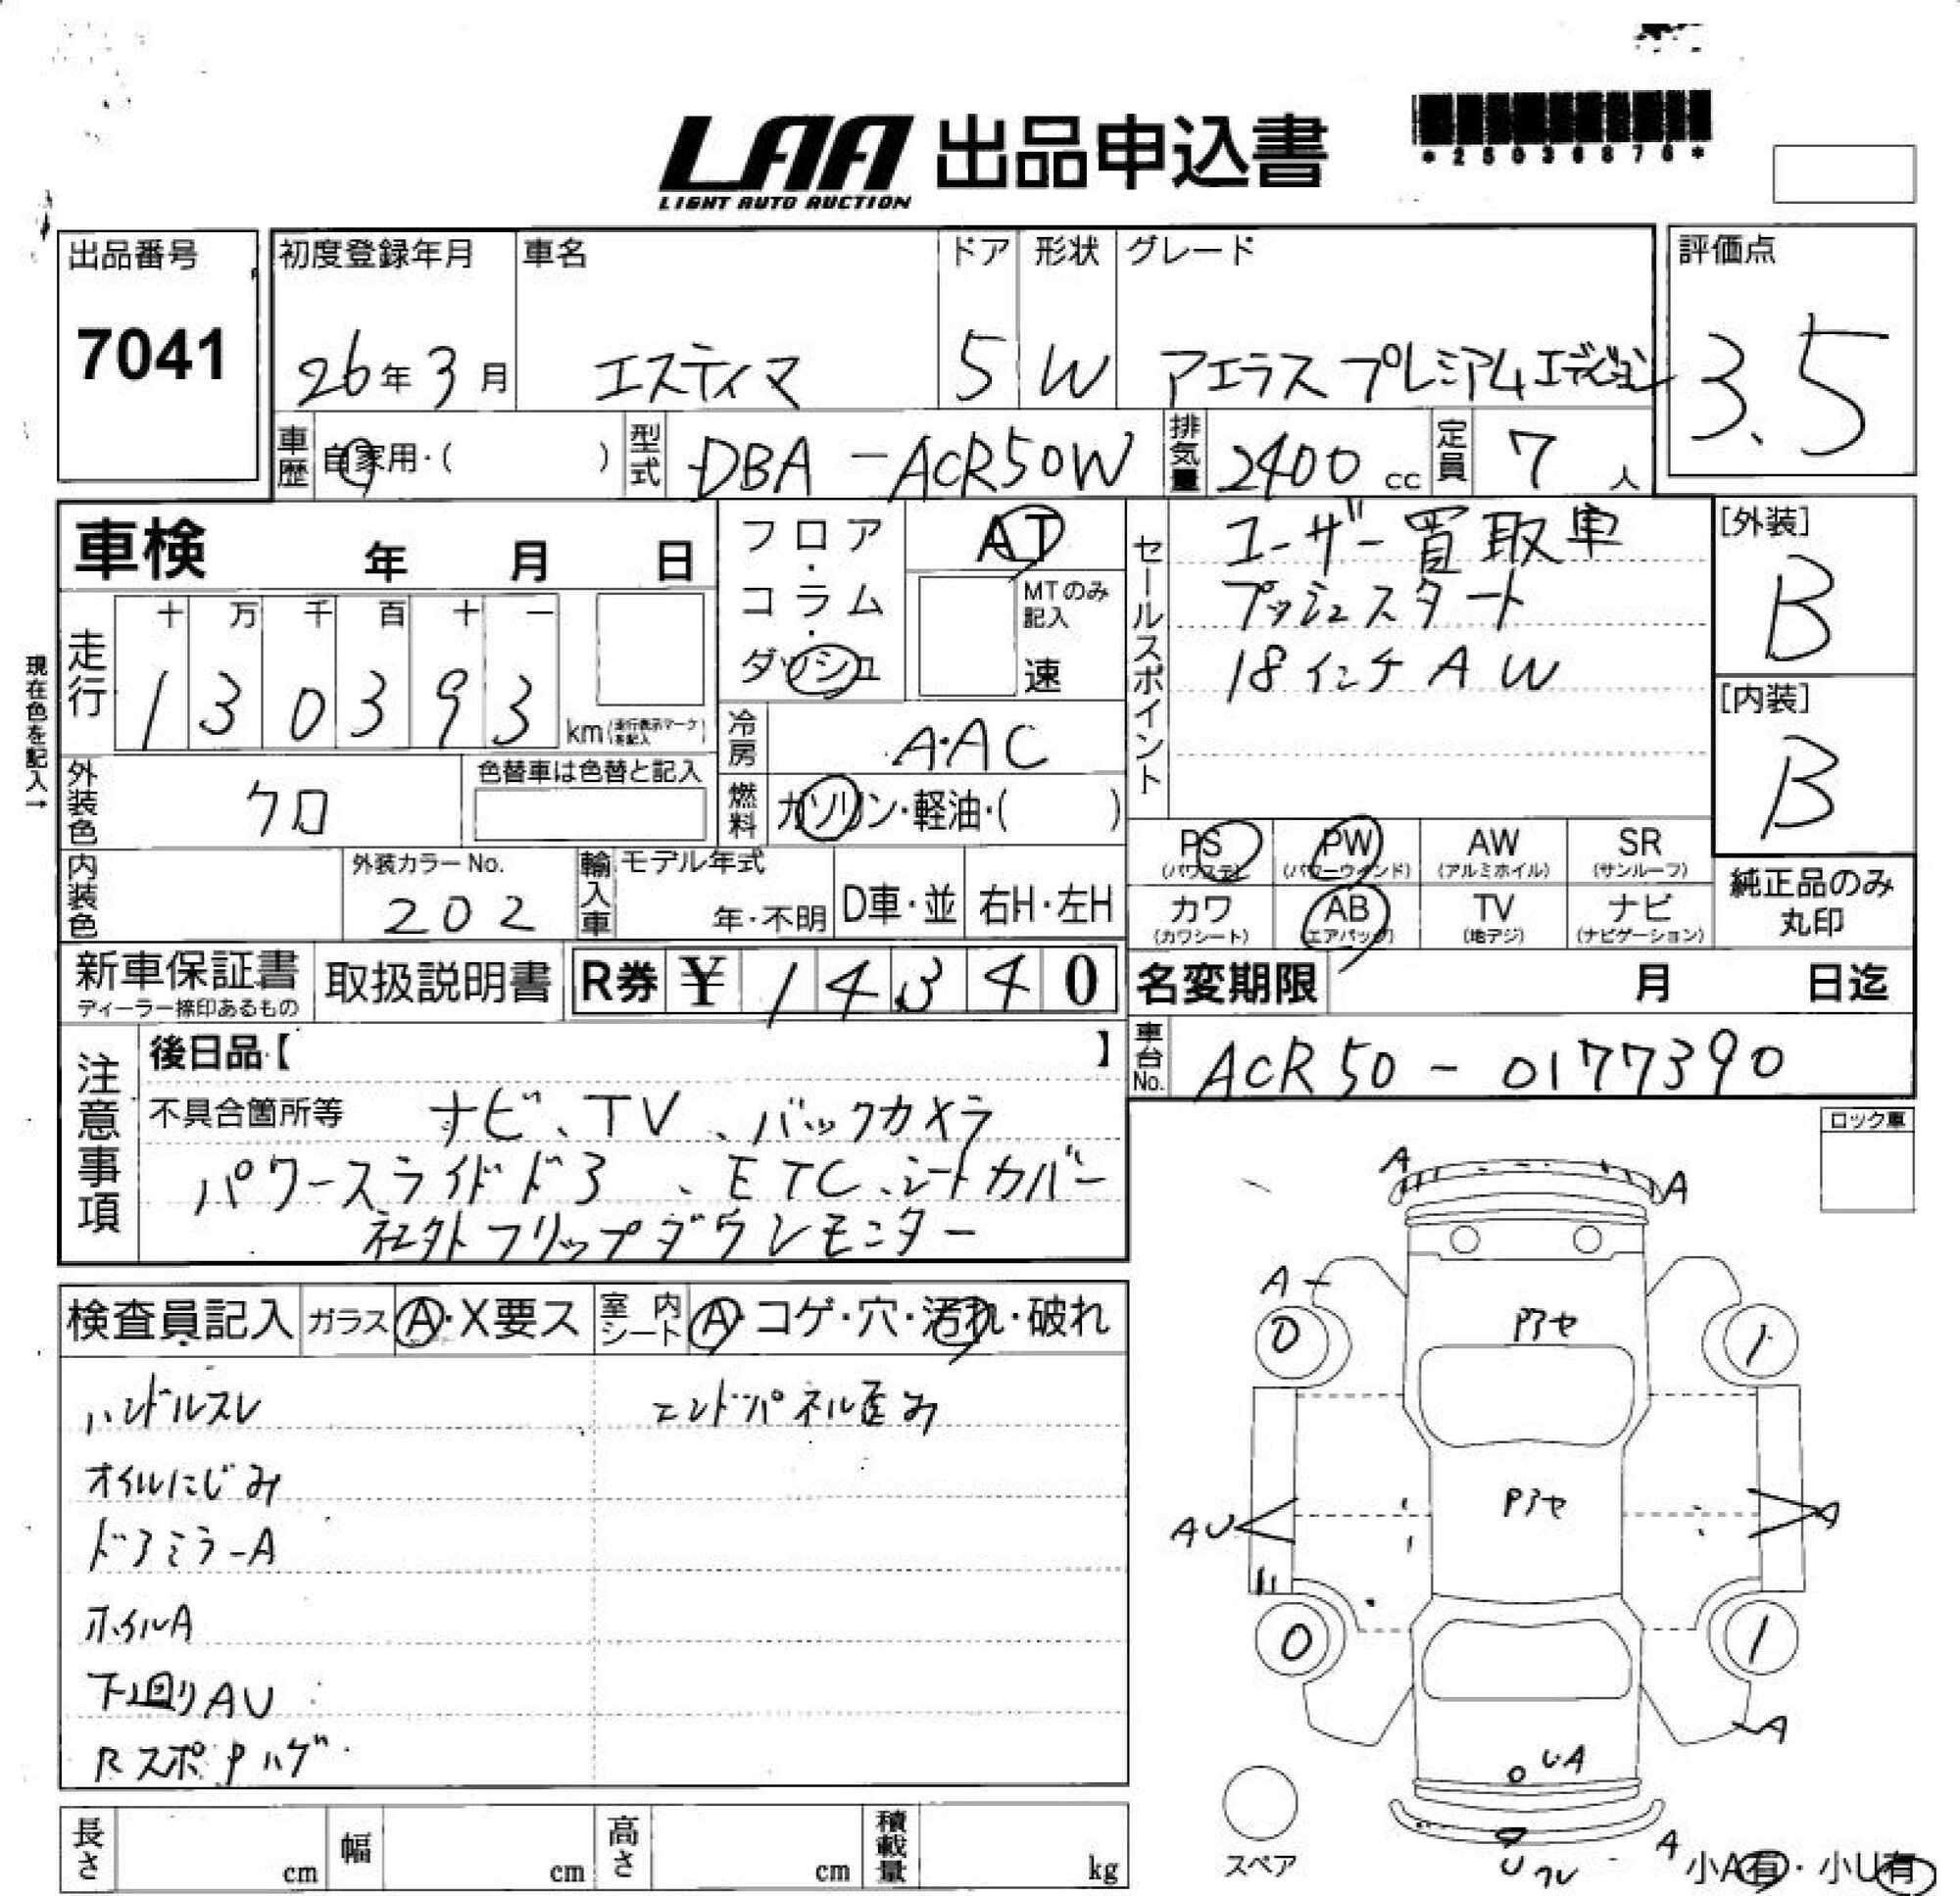 LAA 出品申込書
LIGHT AUTO AUCTION
*25036876*
出品番号
7041
初度登録年月
26年3月
車名
エスティマ
ドア
5
形状
W
グレード
アエラス プレミアムエディション
評価点
3.5
車歴 自家用・( )
型式 DBA-ACR50W
排気量 2400 cc
定員 7 人
車検 年 月 日
フロア・コラム・ダッシュ
AT
MTのみ記入
速
セールスポイント
ユーザー買取車
プッシュスタート
18インチAW
[外装]
B
[内装]
B
現在色を記入→
走行
十 万 千 百 十 一
1 3 0 3 9 3
km(走行表示マークを記入)
冷房 A・AC
外装色 クロ
色替車は色替と記入
燃料 ガソリン・軽油・( )
PS (パワステ)
PW (パワーウィンド)
AW (アルミホイル)
SR (サンルーフ)
カワ (カワシート)
AB (エアバッグ)
TV (地デジ)
ナビ (ナビゲーション)
純正品のみ丸印
内装色
外装カラーNo.
202
輸入車
モデル年式
年・不明
D車・並
右H・左H
新車保証書
ディーラー捺印あるもの
取扱説明書
R券 ¥ 1 4 3 4 0
名変期限 月 日迄
車台No. ACR50-0177390
注意事項
後日品【 】
不具合箇所等 ナビ、TV、バックカメラ
パワースライドドア、ETC、シートカバー
社外フリップダウンモニター
ロック車
検査員記入
ガラス A・X要ス
室内シート A・コゲ・穴・汚れ・破れ
ハンドルスレ
エンドパネル歪み
オイルにじみ
ドアミラーA
ホイルA
下廻りAU
RスポPハゲ
A
A
A
0
Pアセ
1
Pアセ
AU
A
0
1
A
UA
A
U
スペア
小A有・小U有
長さ cm
幅 cm
高さ cm
積載量 kg